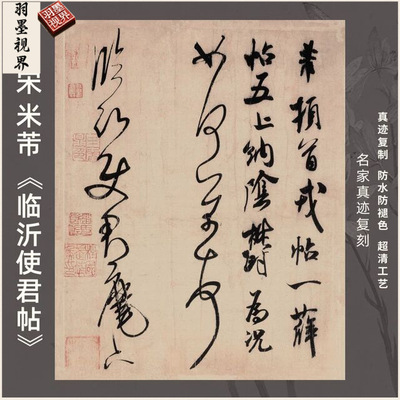 羽墨视界
羽墨视界
宋 米芾《临沂使君帖》
真迹复制 防水防褪色 超清工艺
名家真迹复刻
芾頓首戎帖一薛
帖五上納陰欝為況
如何芾頓首
臨沂使君麾下